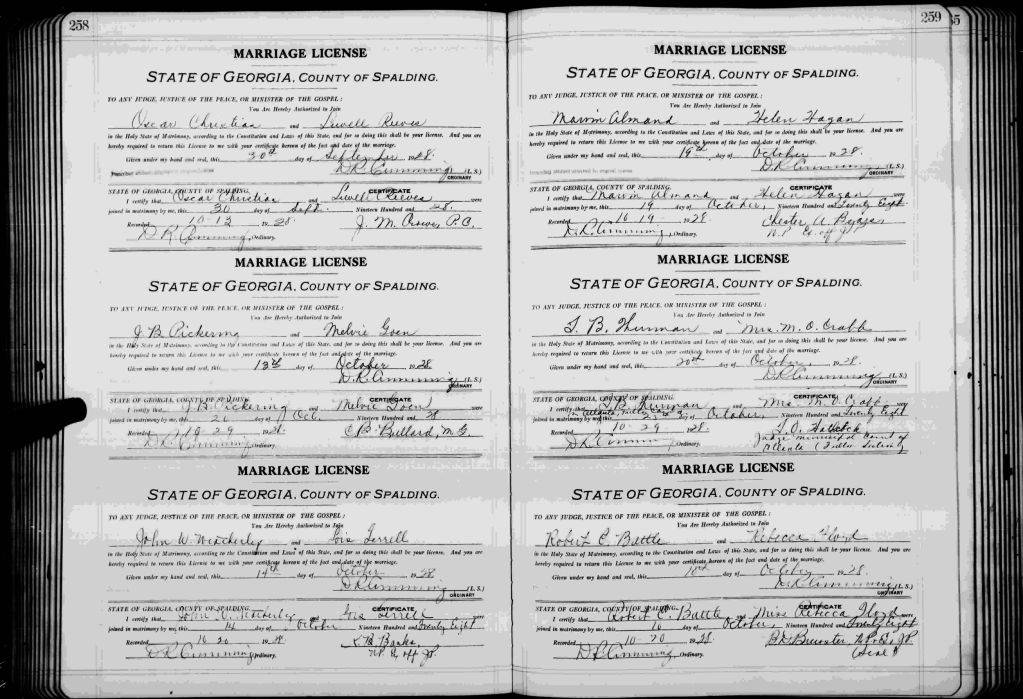 258
MARRIAGE LICENSE
STATE OF GEORGIA, COUNTY OF SPALDING.
TO ANY JUDGE, JUSTICE OF THE PEACE, OR MINISTER OF THE GOSPEL:
You Are Hereby Authorized to Join
Oscar Christian and Luvell Reeves
in the Holy State of Matrimony, according to the Constitution and Laws of this State, and for so doing this shall be your license. And you are
hereby required to return this License to me with your certificate hereon of the fact and date of the marriage.
Given under my hand and seal, this 30th day of September 1928.
D.R. Cumming (L.S.)
ORDINARY
STATE OF GEORGIA, COUNTY OF SPALDING. CERTIFICATE
I certify that Oscar Christian and Luvell Reeves were
joined in matrimony by me, this 30 day of Sept. Nineteen Hundred and 28.
Recorded 10-13 1928. J. M. P.C.
D.R. Cumming, Ordinary.
MARRIAGE LICENSE
STATE OF GEORGIA, COUNTY OF SPALDING.
TO ANY JUDGE, JUSTICE OF THE PEACE, OR MINISTER OF THE GOSPEL:
You Are Hereby Authorized to Join
J. B. Pickering and Melvie Goen
in the Holy State of Matrimony, according to the Constitution and Laws of this State, and for so doing this shall be your license. And you are
hereby required to return this License to me with your certificate hereon of the fact and date of the marriage.
Given under my hand and seal, this 13th day of October 1928.
D.R. Cumming (L.S.)
ORDINARY
STATE OF GEORGIA, COUNTY OF SPALDING. CERTIFICATE
I certify that J. B. Pickering and Melvie Goen were
joined in matrimony by me, this 21 day of Oct. Nineteen Hundred and 28
Recorded 10-29 1928. C. B. Bullard, M.G.
D.R. Cumming, Ordinary.
MARRIAGE LICENSE
STATE OF GEORGIA, COUNTY OF SPALDING.
TO ANY JUDGE, JUSTICE OF THE PEACE, OR MINISTER OF THE GOSPEL:
You Are Hereby Authorized to Join
John W. Weatherley and Lois Terrell
in the Holy State of Matrimony, according to the Constitution and Laws of this State, and for so doing this shall be your license. And you are
hereby required to return this License to me with your certificate hereon of the fact and date of the marriage.
Given under my hand and seal, this 14th day of October 1928.
D.R. Cumming (L.S.)
ORDINARY
STATE OF GEORGIA, COUNTY OF SPALDING. CERTIFICATE
I certify that John W. Weatherley and Lois Terrell were
joined in matrimony by me, this 14 day of October Nineteen Hundred and Twenty Eight
Recorded 10 20 1928. Banks
D.R. Cumming, Ordinary. N.P. Ex off J.P.
259
MARRIAGE LICENSE
STATE OF GEORGIA, COUNTY OF SPALDING.
TO ANY JUDGE, JUSTICE OF THE PEACE, OR MINISTER OF THE GOSPEL:
You Are Hereby Authorized to Join
Marvin Almand and Helen Hagan
in the Holy State of Matrimony, according to the Constitution and Laws of this State, and for so doing this shall be your license. And you are
hereby required to return this License to me with your certificate hereon of the fact and date of the marriage.
Given under my hand and seal, this 19th day of October 1928.
D.R. Cumming (L.S.)
ORDINARY
STATE OF GEORGIA, COUNTY OF SPALDING. CERTIFICATE
I certify that Marvin Almand and Helen Hagan were
joined in matrimony by me, this 19 day of October, Nineteen Hundred and Twenty Eight
Recorded 10-19 1928. Chester A. Byars
D.R. Cumming, Ordinary. N.P. Ex off J.P.
MARRIAGE LICENSE
STATE OF GEORGIA, COUNTY OF SPALDING.
TO ANY JUDGE, JUSTICE OF THE PEACE, OR MINISTER OF THE GOSPEL:
You Are Hereby Authorized to Join
T. B. Thurman and Mrs. M. O. Crabb
in the Holy State of Matrimony, according to the Constitution and Laws of this State, and for so doing this shall be your license. And you are
hereby required to return this License to me with your certificate hereon of the fact and date of the marriage.
Given under my hand and seal, this 20th day of October, 1928.
D.R. Cumming (L.S.)
ORDINARY
STATE OF GEORGIA, COUNTY OF SPALDING. CERTIFICATE
I certify that T. B. Thurman and Mrs. M. O. Crabb were
in Atlanta, Fulton Co.
joined in matrimony by me, this day of October, Nineteen Hundred and Twenty Eight
Recorded 10-29 1928. T. O. Hathcock
D.R. Cumming, Ordinary. Judge Municipal Court of
Atlanta (Fulton Section)
MARRIAGE LICENSE
STATE OF GEORGIA, COUNTY OF SPALDING.
TO ANY JUDGE, JUSTICE OF THE PEACE, OR MINISTER OF THE GOSPEL:
You Are Hereby Authorized to Join
Robert E. Battle and Rebecca Floyd
in the Holy State of Matrimony, according to the Constitution and Laws of this State, and for so doing this shall be your license. And you are
hereby required to return this License to me with your certificate hereon of the fact and date of the marriage.
Given under my hand and seal, this 10th day of October 1928.
D.R. Cumming (L.S.)
ORDINARY
STATE OF GEORGIA, COUNTY OF SPALDING. CERTIFICATE
I certify that Robert E. Battle and Miss Rebecca Floyd were
joined in matrimony by me, this 10 day of October, Nineteen Hundred and Twenty Eight
Recorded 10-20 1928. B.D. Brewster N.P. & J.P.
D.R. Cumming, Ordinary. (Seal)